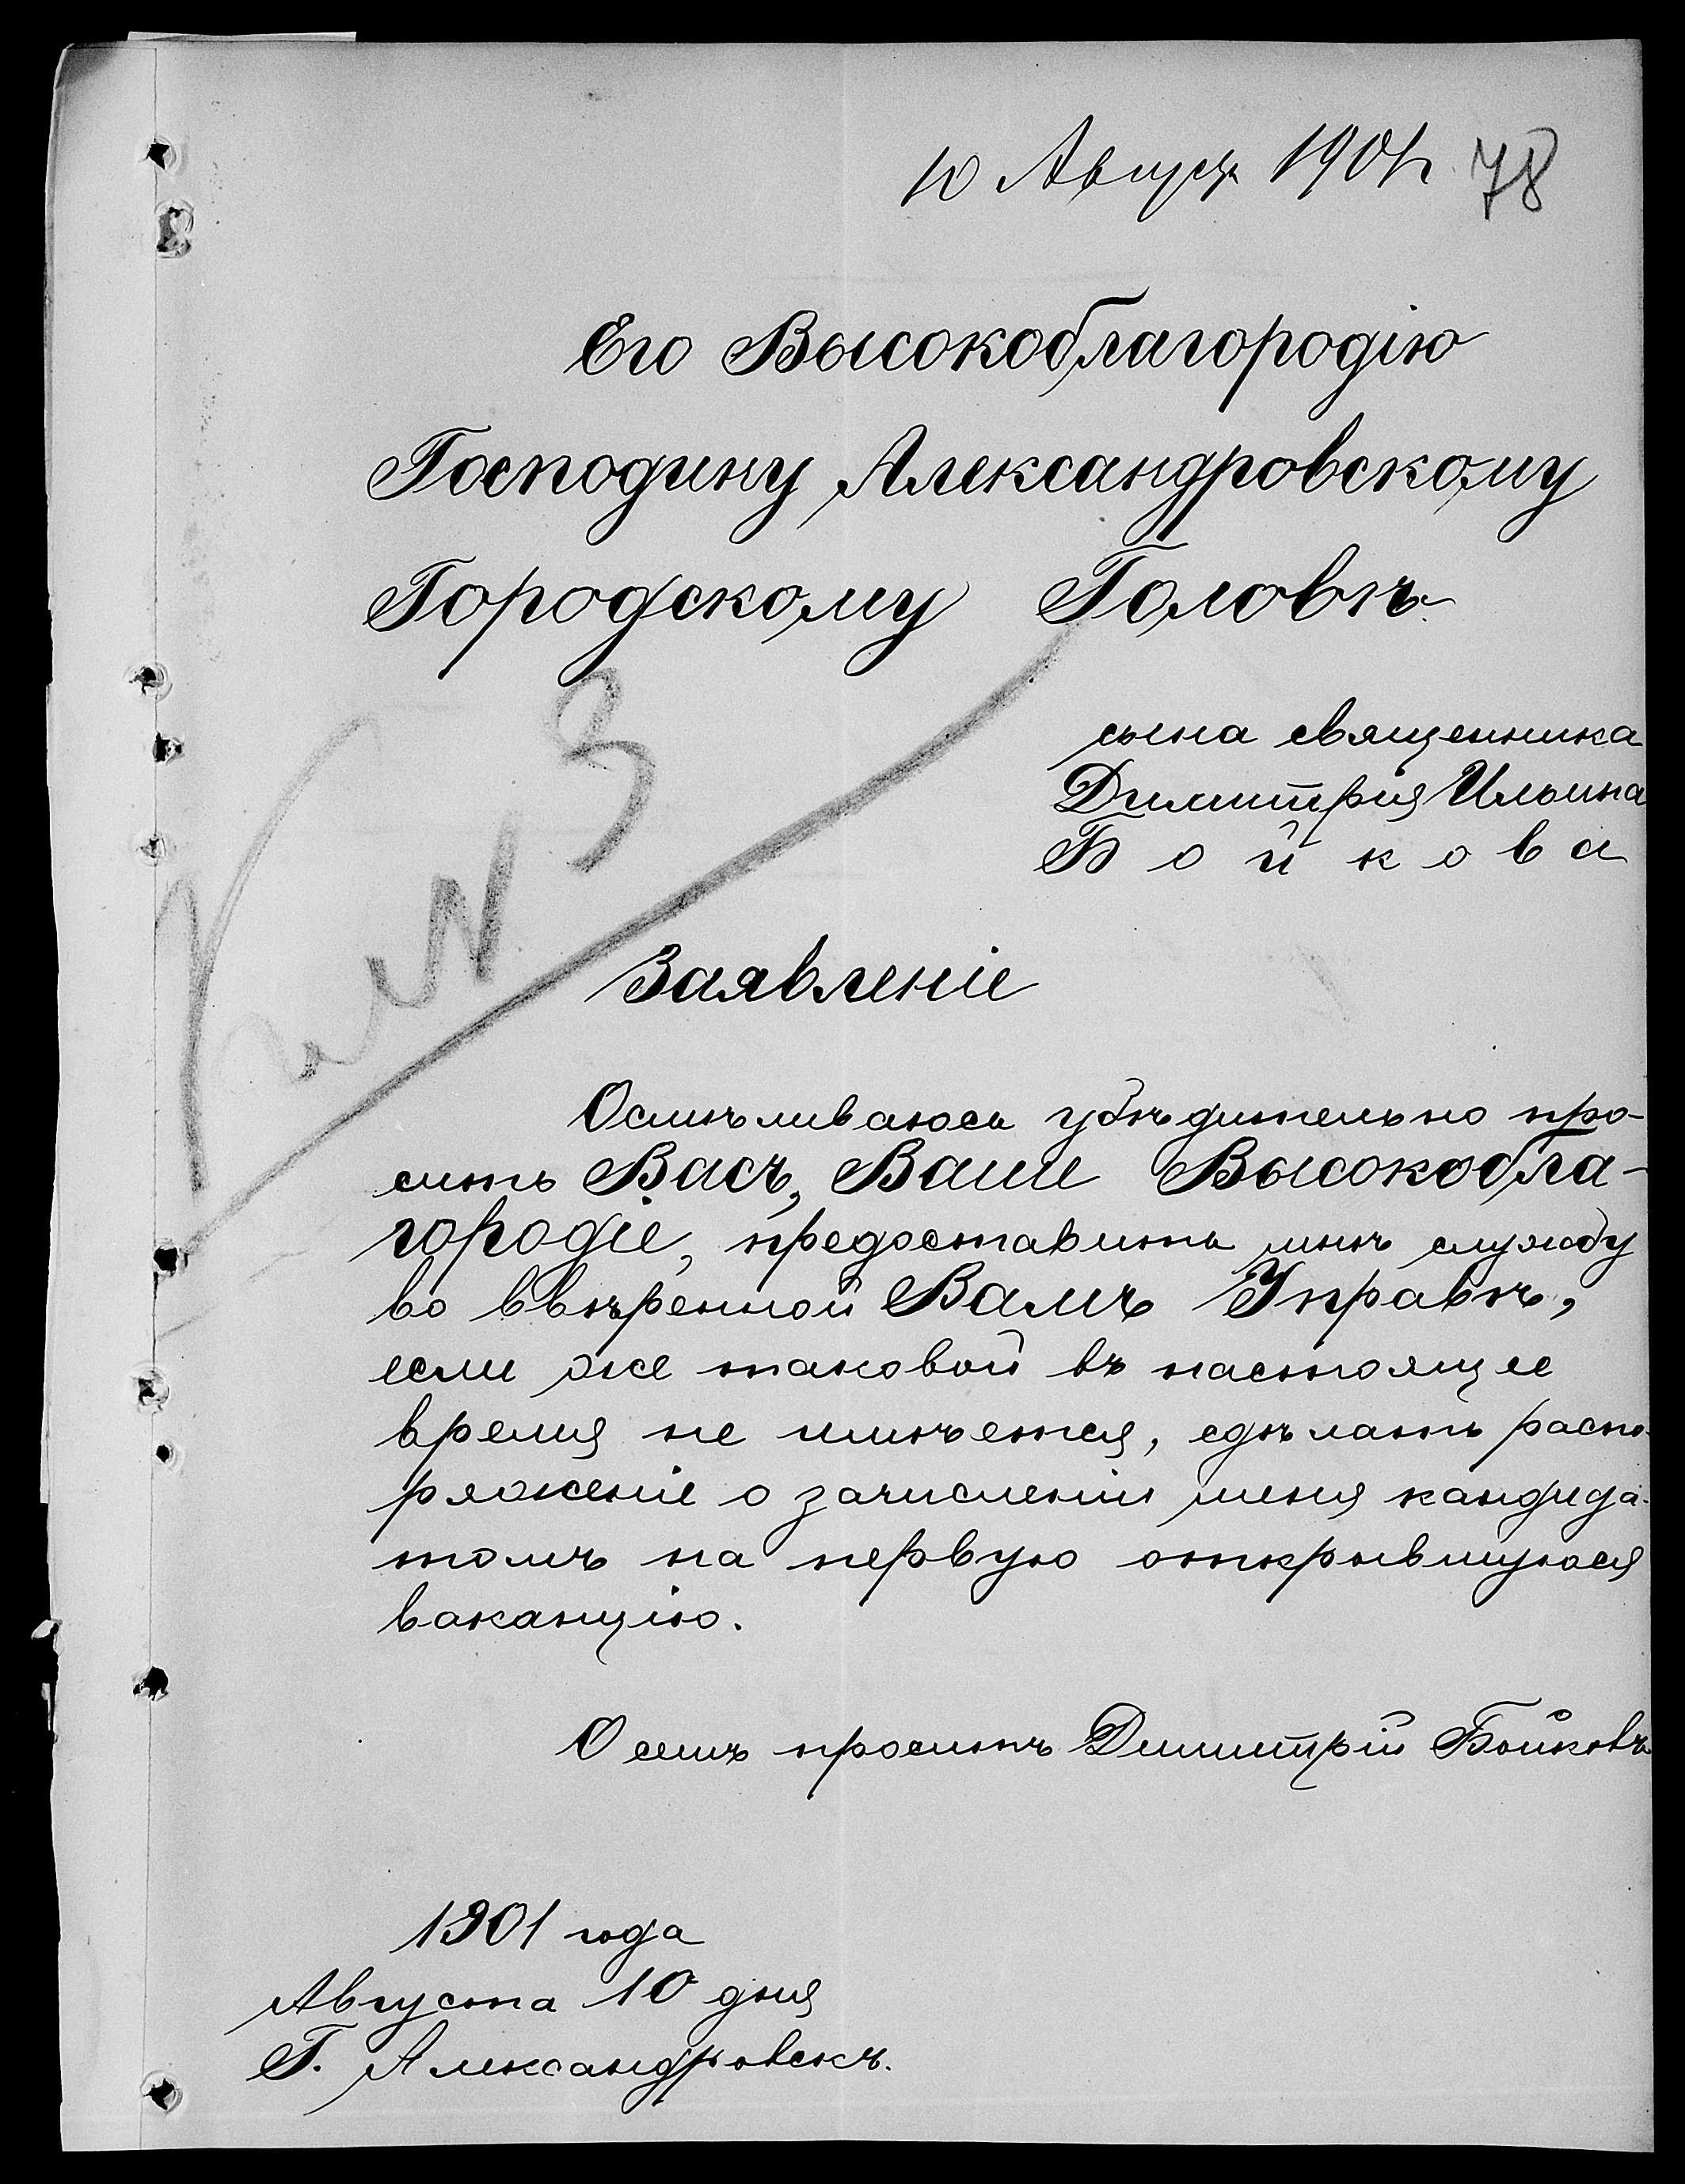 10 Августа 1901 г. 78
Его Высокоблагородію
Господину Александровскому
Городскому Головѣ
сына священника
Димитрия Ильина
Бойкова
Заявленіе
Осмѣливаюсь убѣдительно про-
сить Васъ, Ваше Высокобла-
городіе, предоставить мнѣ службу
во ввѣренной Вамъ Управѣ,
если же таковой въ настоящее
время не имѣется, сдѣлать распо-
ряженіе о зачисленіи меня кандида-
томъ на первую открывшуюся
вакансію.
О семъ проситъ Димитрій Бойковъ
1901 года
Августа 10 дня
Г. Александровскъ.